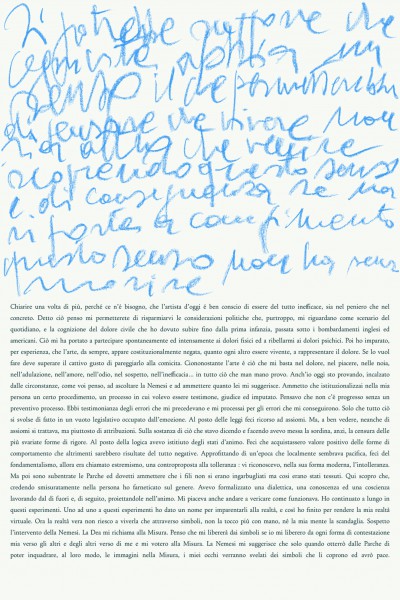 Si potrebbe supporre che
abbia un
senso il che
di pensare che vivere non
sia altro che venire
scoprendo questo senso
e di conseguenza se non
si porta a compimento
questo senso non ha senso
morire
Chiarire una volta di più, perchè ce n'è bisogno, che l'artista d'oggi è ben conscio di essere del tutto inefficace, sia nel pensiero che nel
concreto. Detto ciò penso mi permetterete di risparmiarvi le considerazioni politiche che, purtroppo, mi riguardano come scenario del
quotidiano, e la cognizione del dolore civile che ho dovuto subire fino dalla prima infanzia, passata sotto i bombardamenti inglesi ed
americani. Ciò mi ha portato a partecipare spontaneamente ed intensamente ai dolori fisici ed a ribellarmi ai dolori psichici. Poi ho imparato,
per esperienza, che l'arte, da sempre, appare costituzionalmente negata, quanto ogni altro essere vivente, a rappresentare il dolore. Se lo vuol
fare deve superare il cattivo gusto di pareggiarlo alla comicità. Ciononostante l'arte è ciò che mi basta nel dolore, nel piacere, nelle noia,
nell'adulazione, nell'amore, nell'odio, nel sospetto, nell'inefficacia... in tutto ciò che man mano provo. Anch'io oggi sto provando, incalzato
dalle circostanze, come voi penso, ad ascoltare la Nemesi e ad ammettere quanto lei mi suggerisce. Ammetto che istituzionalizzai nella mia
persona un certo procedimento, un processo in cui volevo essere testimone, giudice ed imputato. Pensavo che non c'è progresso senza un
preventivo processo. Ebbi testimonianza degli errori che mi precedevano e mi processai per gli errori che mi conseguirono. Solo che tutto ciò
si svolse di fatto in un vuoto legislativo occupato dall'emozione. Al posto delle leggi feci ricorso ad assiomi. Ma, a ben vedere, neanche di
assiomi si trattava, ma piuttosto di attribuzioni. Sulla sostanza di ciò che stavo dicendo e facendo avevo messa la sordina, anzi, la censura delle
più svariate forme di rigore. Al posto della logica avevo istituito degli stati d'animo. Feci che acquistassero valore positivo delle forme di
comportamento che altrimenti sarebbero risultate del tutto negative. Approfittando di un'epoca localmente sembrava pacifica, feci del
fondamentalismo, allora era chiamato estremismo, una controproposta alla tolleranza : vi riconoscevo, nella sua forma moderna, l'intolleranza.
Ma poi sono subentrate le Parche ed dovetti ammettere che i fili non si erano ingarbugliati ma così erano stati tessuti. Qui scopro che,
credendo smisuratamente nella persona ho farneticato sul genere. Avevo formalizzato una dialettica, una conoscenza ed una coscienza
lavorando dal di fuori e, di seguito, proiettandole nell'animo. Mi piaceva anche andare a vericare come funzionava. Ho continuato a lungo in
questi esperimenti. Uno ad uno a questi esperimenti ho dato un nome per impartenarli alla realtà, e così ho finito per rendere la mia realtà
virtuale. Ora la realtà vera non riesco a viverla che attraverso simboli, non la tocco più con mano, nè la mia mente la scandaglia. Sospetto
l'intervento della Nemesi. La Dea mi richiama alla Misura. Penso che mi libererà dai simboli se io mi libererò da ogni forma di contestazione
mia verso gli altri e degli altri verso di me e mi votero alla Misura. La Nemesi mi suggerisce che solo quando otterrò dalle Parche di
poter inquadrare, al loro modo, le immagini nella Misura, i miei occhi verranno svelati dei simboli che li coprono ed avrò pace.